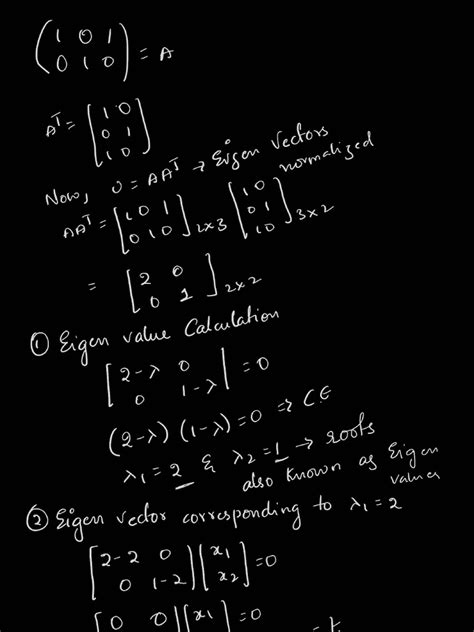 (1 0 1
0 1 0) = A
Aᵀ = [1 0
0 1
1 0]
Now, U = AAᵀ → Eigen Vectors
normalized
AAᵀ = [1 0 1
0 1 0]2x3 [1 0
0 1
1 0]3x2
= [2 0
0 1]2x2
① Eigen value Calculation
[2-λ 0
0 1-λ| = 0
(2-λ) (1-λ) = 0 => CE
λ1 = 2 & λ2 = 1 → roots
also known as Eigen
values
② Eigen vector corresponding to λ1 = 2
[2-2 0
0 1-2] [x1
x2] = 0
[0 0] [x1 = 0